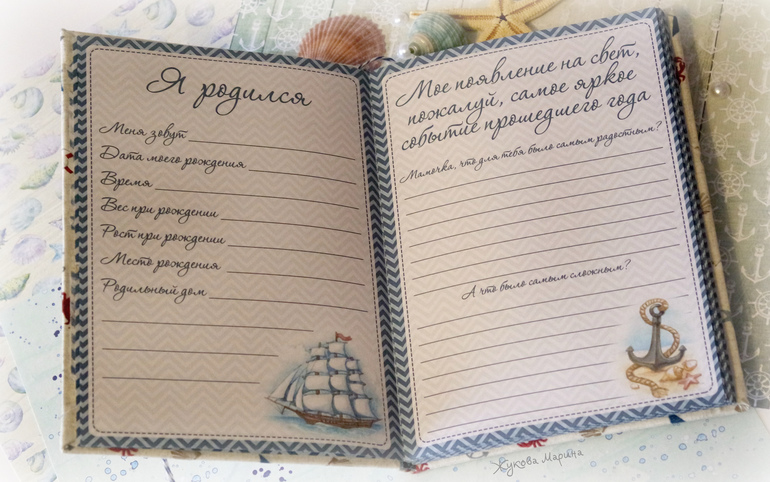 Я родился
Меня зовут
Дата моего рождения
Время
Вес при рождении
Рост при рождении
Место рождения
Родильный дом
Мое появление на свет,
пожалуй, самое яркое
событие прошедшего года
Мамочка, что для тебя было самым радостным?
А что было самым сложным?
Жукова Марина